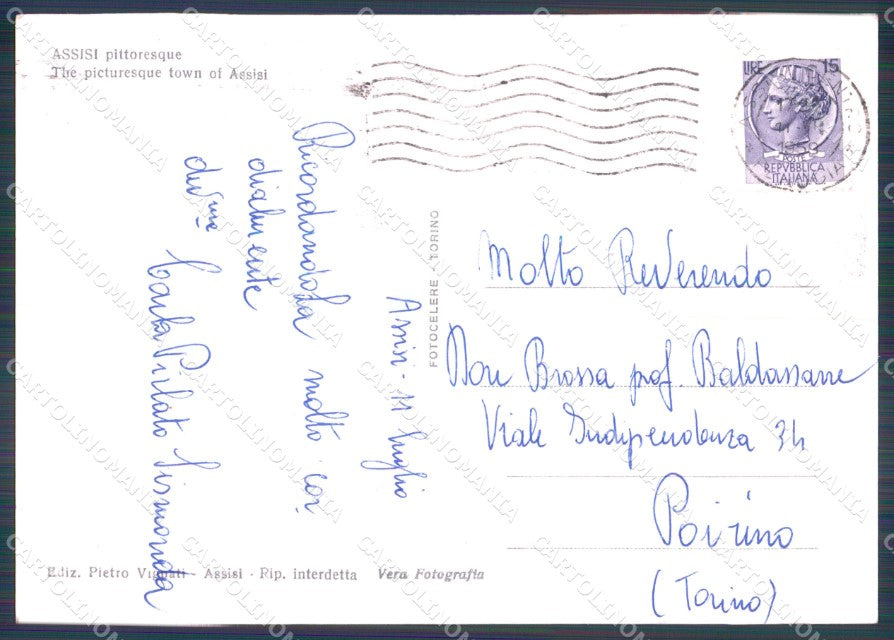 ASSISI pittoresque
The picturesque town of Assisi
LIRE 15
POSTE
REPVBBLICA
ITALIANA
Assisi - 11 luglio
Ricordandola molto cor
dialmente
dev.me
Carla
FOTOCELERE - TORINO
Molto Reverendo
Don Brossa prof. Baldassarre
Viale Indipendenza 34
Poirino
(Torino)
Ediz. Pietro Vignati - Assisi - Rip. interdetta Vera Fotografia
CARTOLINOMANIA